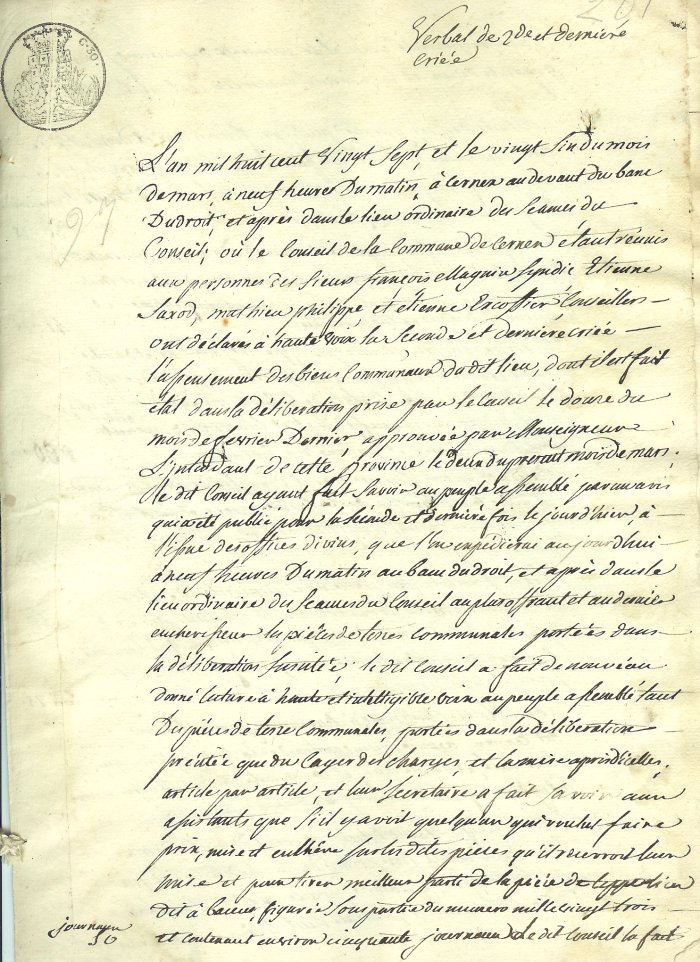 201
Verbal de 2de et derniére
criéé
C. 30.
L'an mil huit cent vingt sept, et le vingt six du mois
de mars, à neuf heures du matin, à Cernex au devant du banc
du droit, et après dans le lieu ordinaire des séances du
Conseil; où le Conseil de la Commune de Cernex étant réunis
aux personnes des sieurs françois Magnin syndic Etienne
Saxod, mathieu philippe et étienne Excoffier Conseillers
ont déclarés à haute voix la seconde et derniére criéé
l'assensement des biens Communaux du dit lieu, dont il est fait
état dans la déliberation prise par le Conseil le douze du
mois de fevrier dernier, approuvée par Monseigneur
L'intendant de cette province le deux du present mois de mars.
le dit Conseil ayant fait savoir au peuple assemblé par un avis
qui a été publié pour la séconde et derniére fois le jour d'hier, à
l'issue des offices divins, que l'on expédierai aujourd'hui
à neuf heures du matin au banc du droit, et après dans le
lieu ordinaire des séances du Conseil au plus offrant et au dernier
encherisseur les piéces de terres communales portées dans
la déliberation susditéé: le dit Conseil a fait de nouveau
donné lecture à haute et intelligible voix au peuple assemblé tant
des piéces de terre Communales, portées dans la déliberation
précitée que du cayer des charges, et la mise à prix d'icelles,
article par article, et leur sécretaire a fait savoir aux
assistants que s'il y avoit quelqu'un qui voulut faire
prix, mise et enchére sur les dites pieces qu'il recevroit leur
mise et pour tirer meilleur parti de la piéce de
dit à figuréé sous partie du numero mille vingt trois
journaux
50
et contenant environ cinquante journaux le dit Conseil la fait
97